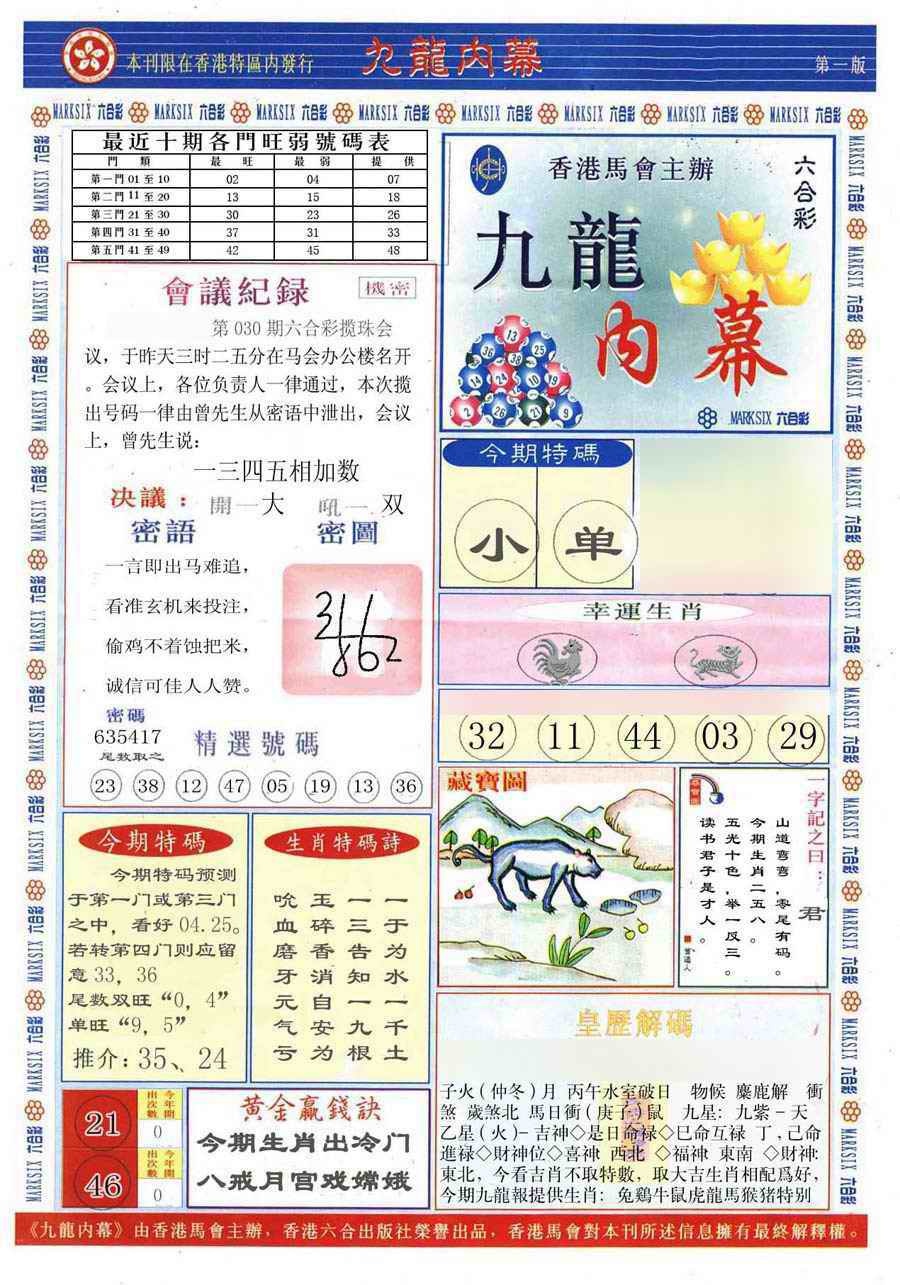 本刊限在香港特區内發行
九龍内幕
第一版
MARKSIX 六合彩
最近十期各門旺弱號碼表
門 類 最 旺 最 弱 提 供
第一門 01 至 10 02 04 07
第二門 11 至 20 13 15 18
第三門 21 至 30 30 23 26
第四門 31 至 40 37 31 33
第五門 41 至 49 42 45 48
會議紀录
機密
第 030 期六合彩攬珠会
议，于昨天三时二五分在马会办公楼名开
。会议上，各位负责人一律通过，本次揽
出号码一律由曾先生从密语中泄出，会议
上，曾先生说：
一三四五相加数
决議：開一大 吼一双
密語
密圖
一言即出马难追，
看准玄机来投注，
偷鸡不着蚀把米，
诚信可佳人人赞。
密碼
635417
尾数取之
精選號碼
23 38 12 47 05 19 13 36
香港馬會主辦
六合彩
九龍
内幕
13
36 38 25
14 24 10 19
2 26 21 9
MARKSIX 六合彩
今期特碼
小 单
幸運生肖
32 11 44 03 29
藏寶圖
一字記之曰：君
山道弯弯，零尾有码。
今期生肖二五八。
五光十色，举一反三。
读书君子是才人。
曾道人
今期特碼
今期特码预测
于第一门或第三门
之中，看好 04.25。
若转第四门则应留
意 33，36
尾数双旺“0，4”
单旺“9，5”
推介：35、24
生肖特碼詩
一于为水一千土
一三告知一九根
玉碎香消自安为
吮血磨牙元气亏
21
出次數
今年開
0
46
出次數
今年開
0
黄金贏錢訣
今期生肖出冷门
八戒月宫戏嫦娥
皇歷解碼
子火（仲冬）月 丙午水室破日 物候 麋鹿解 衝
煞 歲煞北 馬日衝（庚子）鼠 九星：九紫－天
乙星（火）－吉神◇是日命禄◇巳命互禄 丁，己命
進禄◇財神位◇喜神 西北 ◇福神 東南 ◇財神：
東北，今看吉肖不取特數，取大吉生肖相配爲好，
今期九龍報提供生肖：兔鷄牛鼠虎龍馬猴猪特别
《九龍内幕》由香港馬會主辦，香港六合出版社榮譽出品，香港馬會對本刊所述信息擁有最終解釋權。